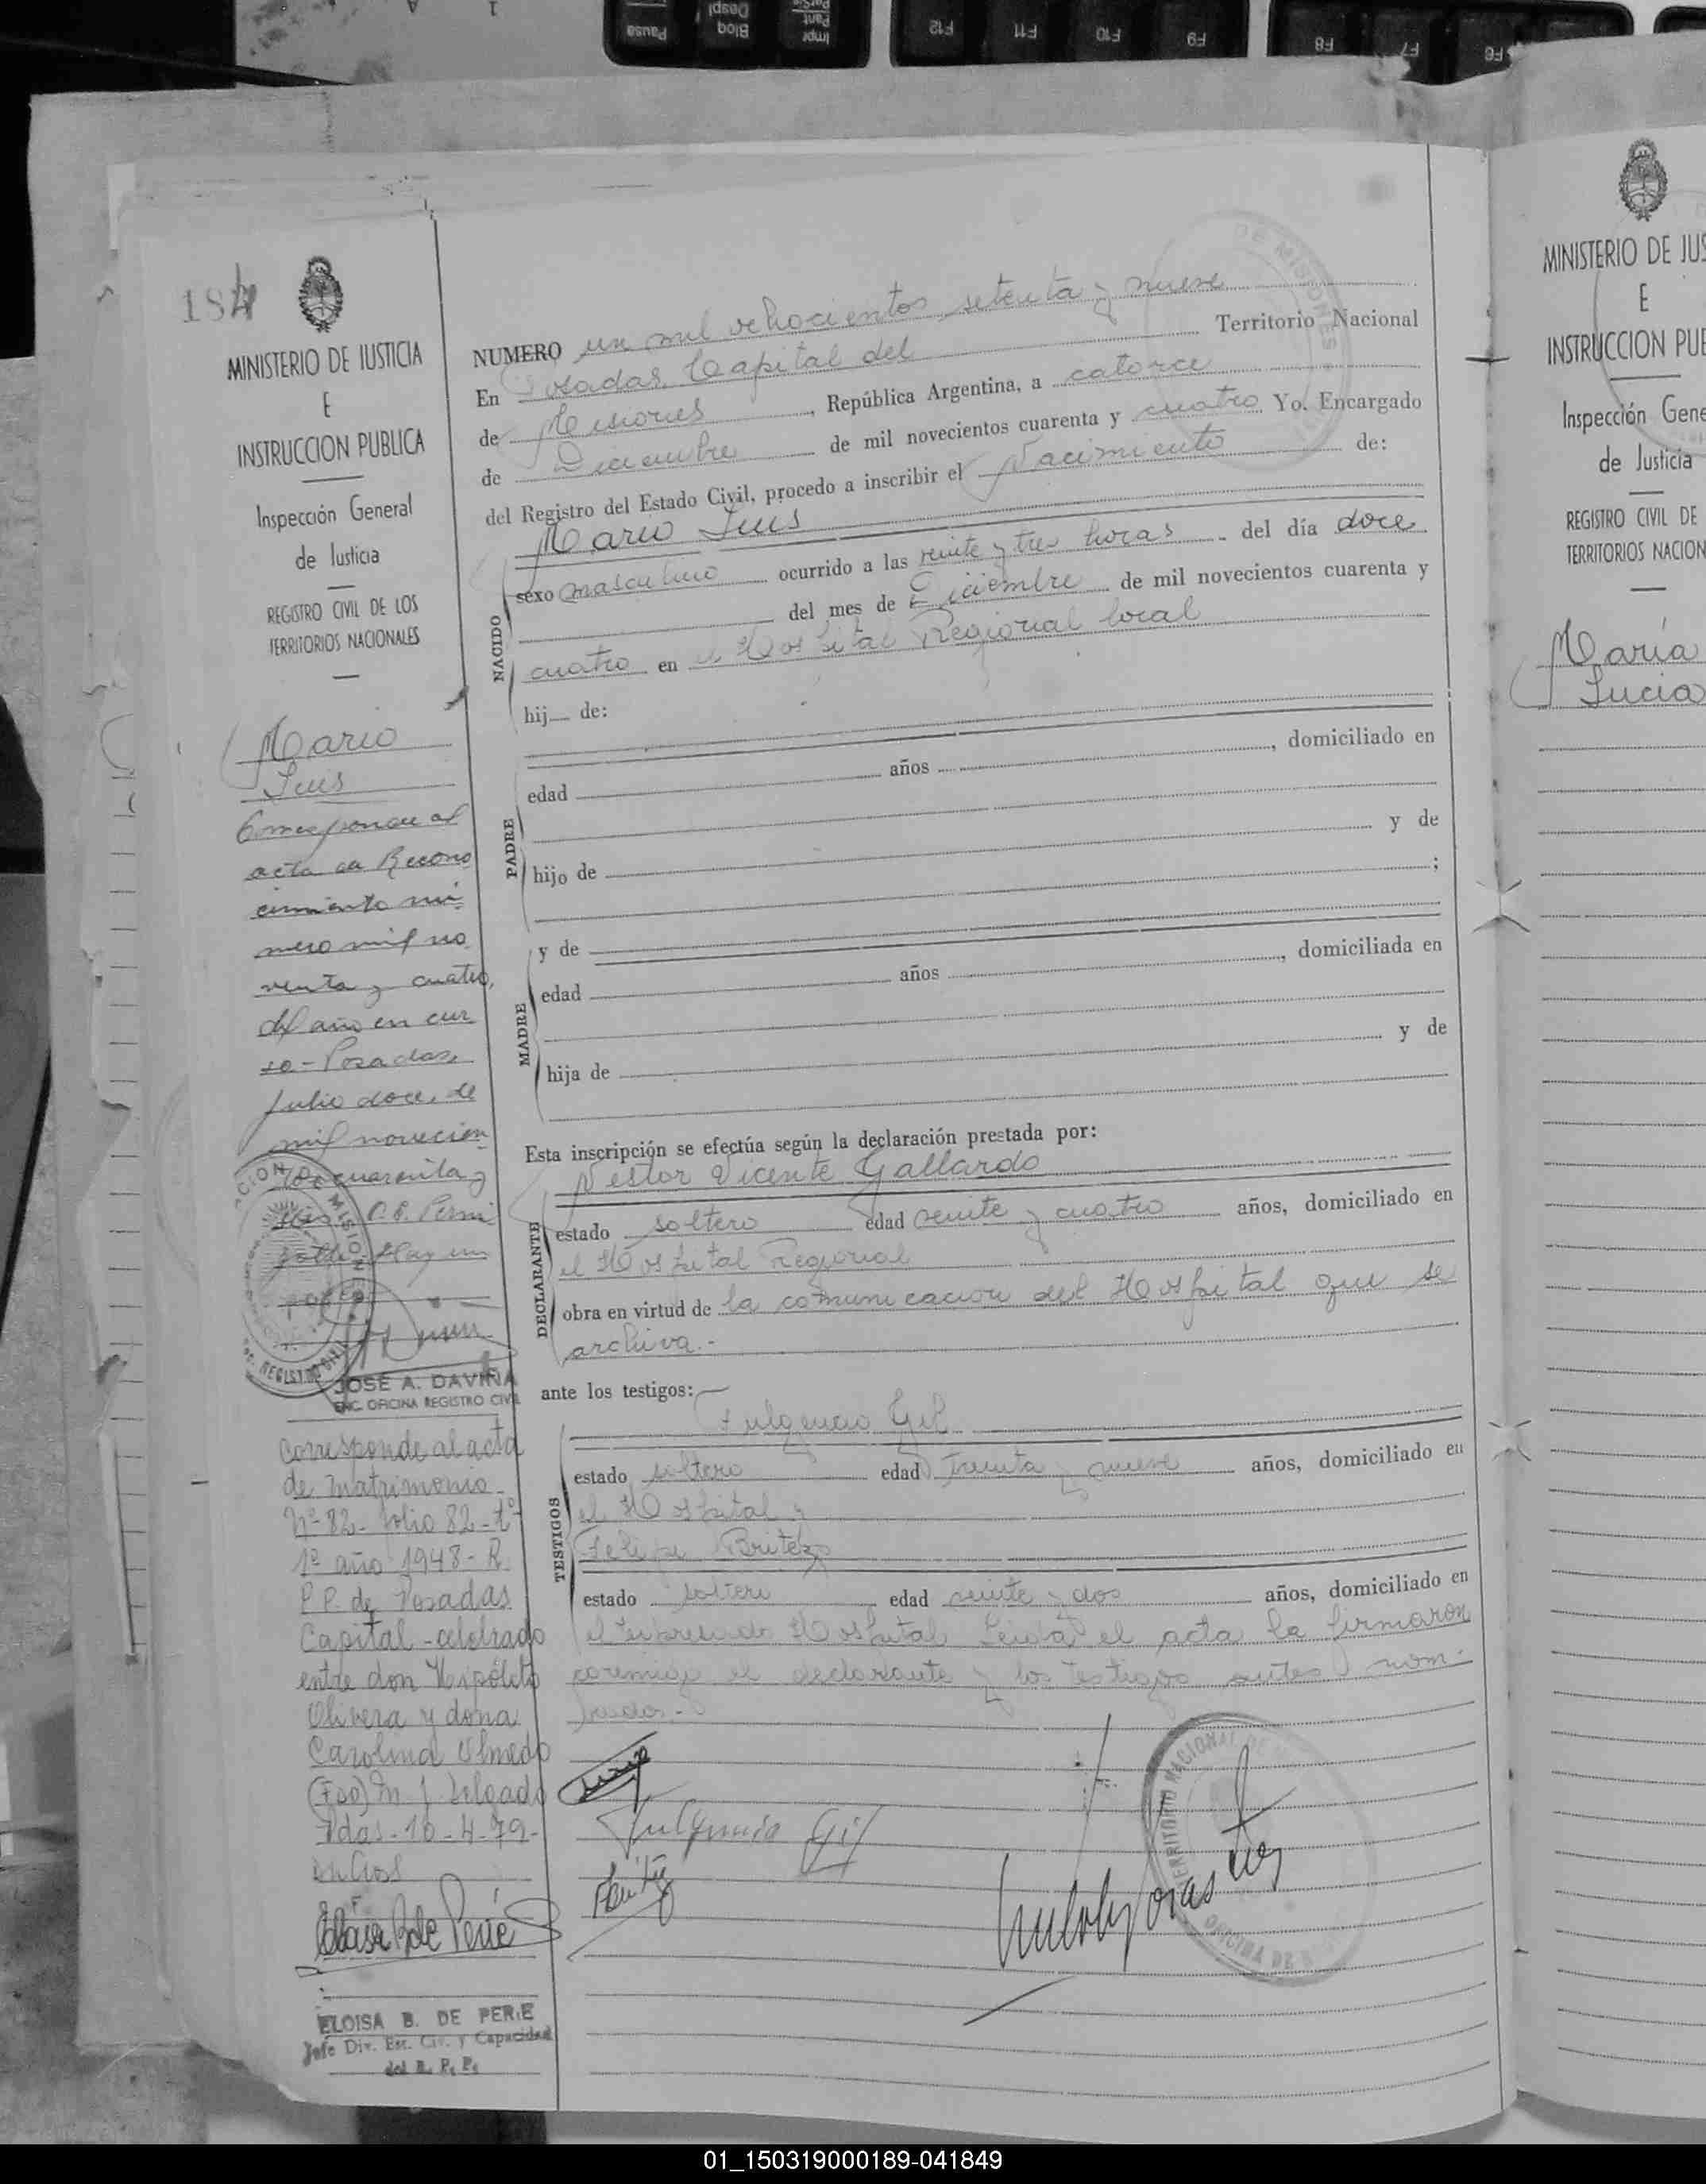 184
MINISTERIO DE JUSTICIA
E
INSTRUCCION PUBLICA
Inspección General
de Justicia
REGISTRO CIVIL DE LOS
TERRITORIOS NACIONALES
Mario
Luis
Corresponde al
acta de Recono
cimiento nú-
mero mil no
venta y cuatro,
del año en cur
so - Posadas,
Julio doce, de
mil novecien
tos cuarenta y
seis
Hay un
JOSE A. DAVIÑA
ENC. OFICINA REGISTRO CIVIL
Corresponde al acta
de Matrimonio
Nº 82 - folio 82 - tº
1º año 1948 - R.
P.P. de Posadas
Capital - celebrado
entre don Hipólito
Olivera y doña
Carolina Olmedo
(Fdo) M. J. Delgado
Pdas - 10 - 4 - 79 -
ELOISA B. DE PERIE
Jefe Div. Est. Civ. y Capacidad
del R. P. P.
NUMERO un mil ochocientos setenta y nueve
En Posadas, Capital del Territorio Nacional
de Misiones, República Argentina, a catorce
de Diciembre de mil novecientos cuarenta y cuatro Yo. Encargado
del Registro del Estado Civil, procedo a inscribir el Nacimiento de:
NACIDO
Mario Luis
sexo masculino ocurrido a las veinte y tres horas del día doce
del mes de Diciembre de mil novecientos cuarenta y
cuatro en el Hospital Regional local
hij de:
PADRE
edad años , domiciliado en
hijo de y de
;
MADRE
y de
edad años , domiciliada en
hija de y de
Esta inscripción se efectúa según la declaración prestada por:
DECLARANTE
Nestor Vicente Gallardo
estado soltero edad veinte y cuatro años, domiciliado en
el Hospital Regional
obra en virtud de la comunicacion del Hospital que se
archiva.-
ante los testigos:
TESTIGOS
Fulgencio Gil
estado soltero edad Treinta y nueve años, domiciliado en
el Hospital y
Felipe Britez
estado soltero edad veinte y dos años, domiciliado en
el expresado Hospital Leida el acta la firmaron
conmigo el declarante y los testigos antes nom-
brados.-
Fulgencio Gil
Britez
MINISTERIO DE JUS
E
INSTRUCCION PUB
Inspección Gene
de Justicia
REGISTRO CIVIL DE
TERRITORIOS NACION
María
Lucia
01_150319000189-041849